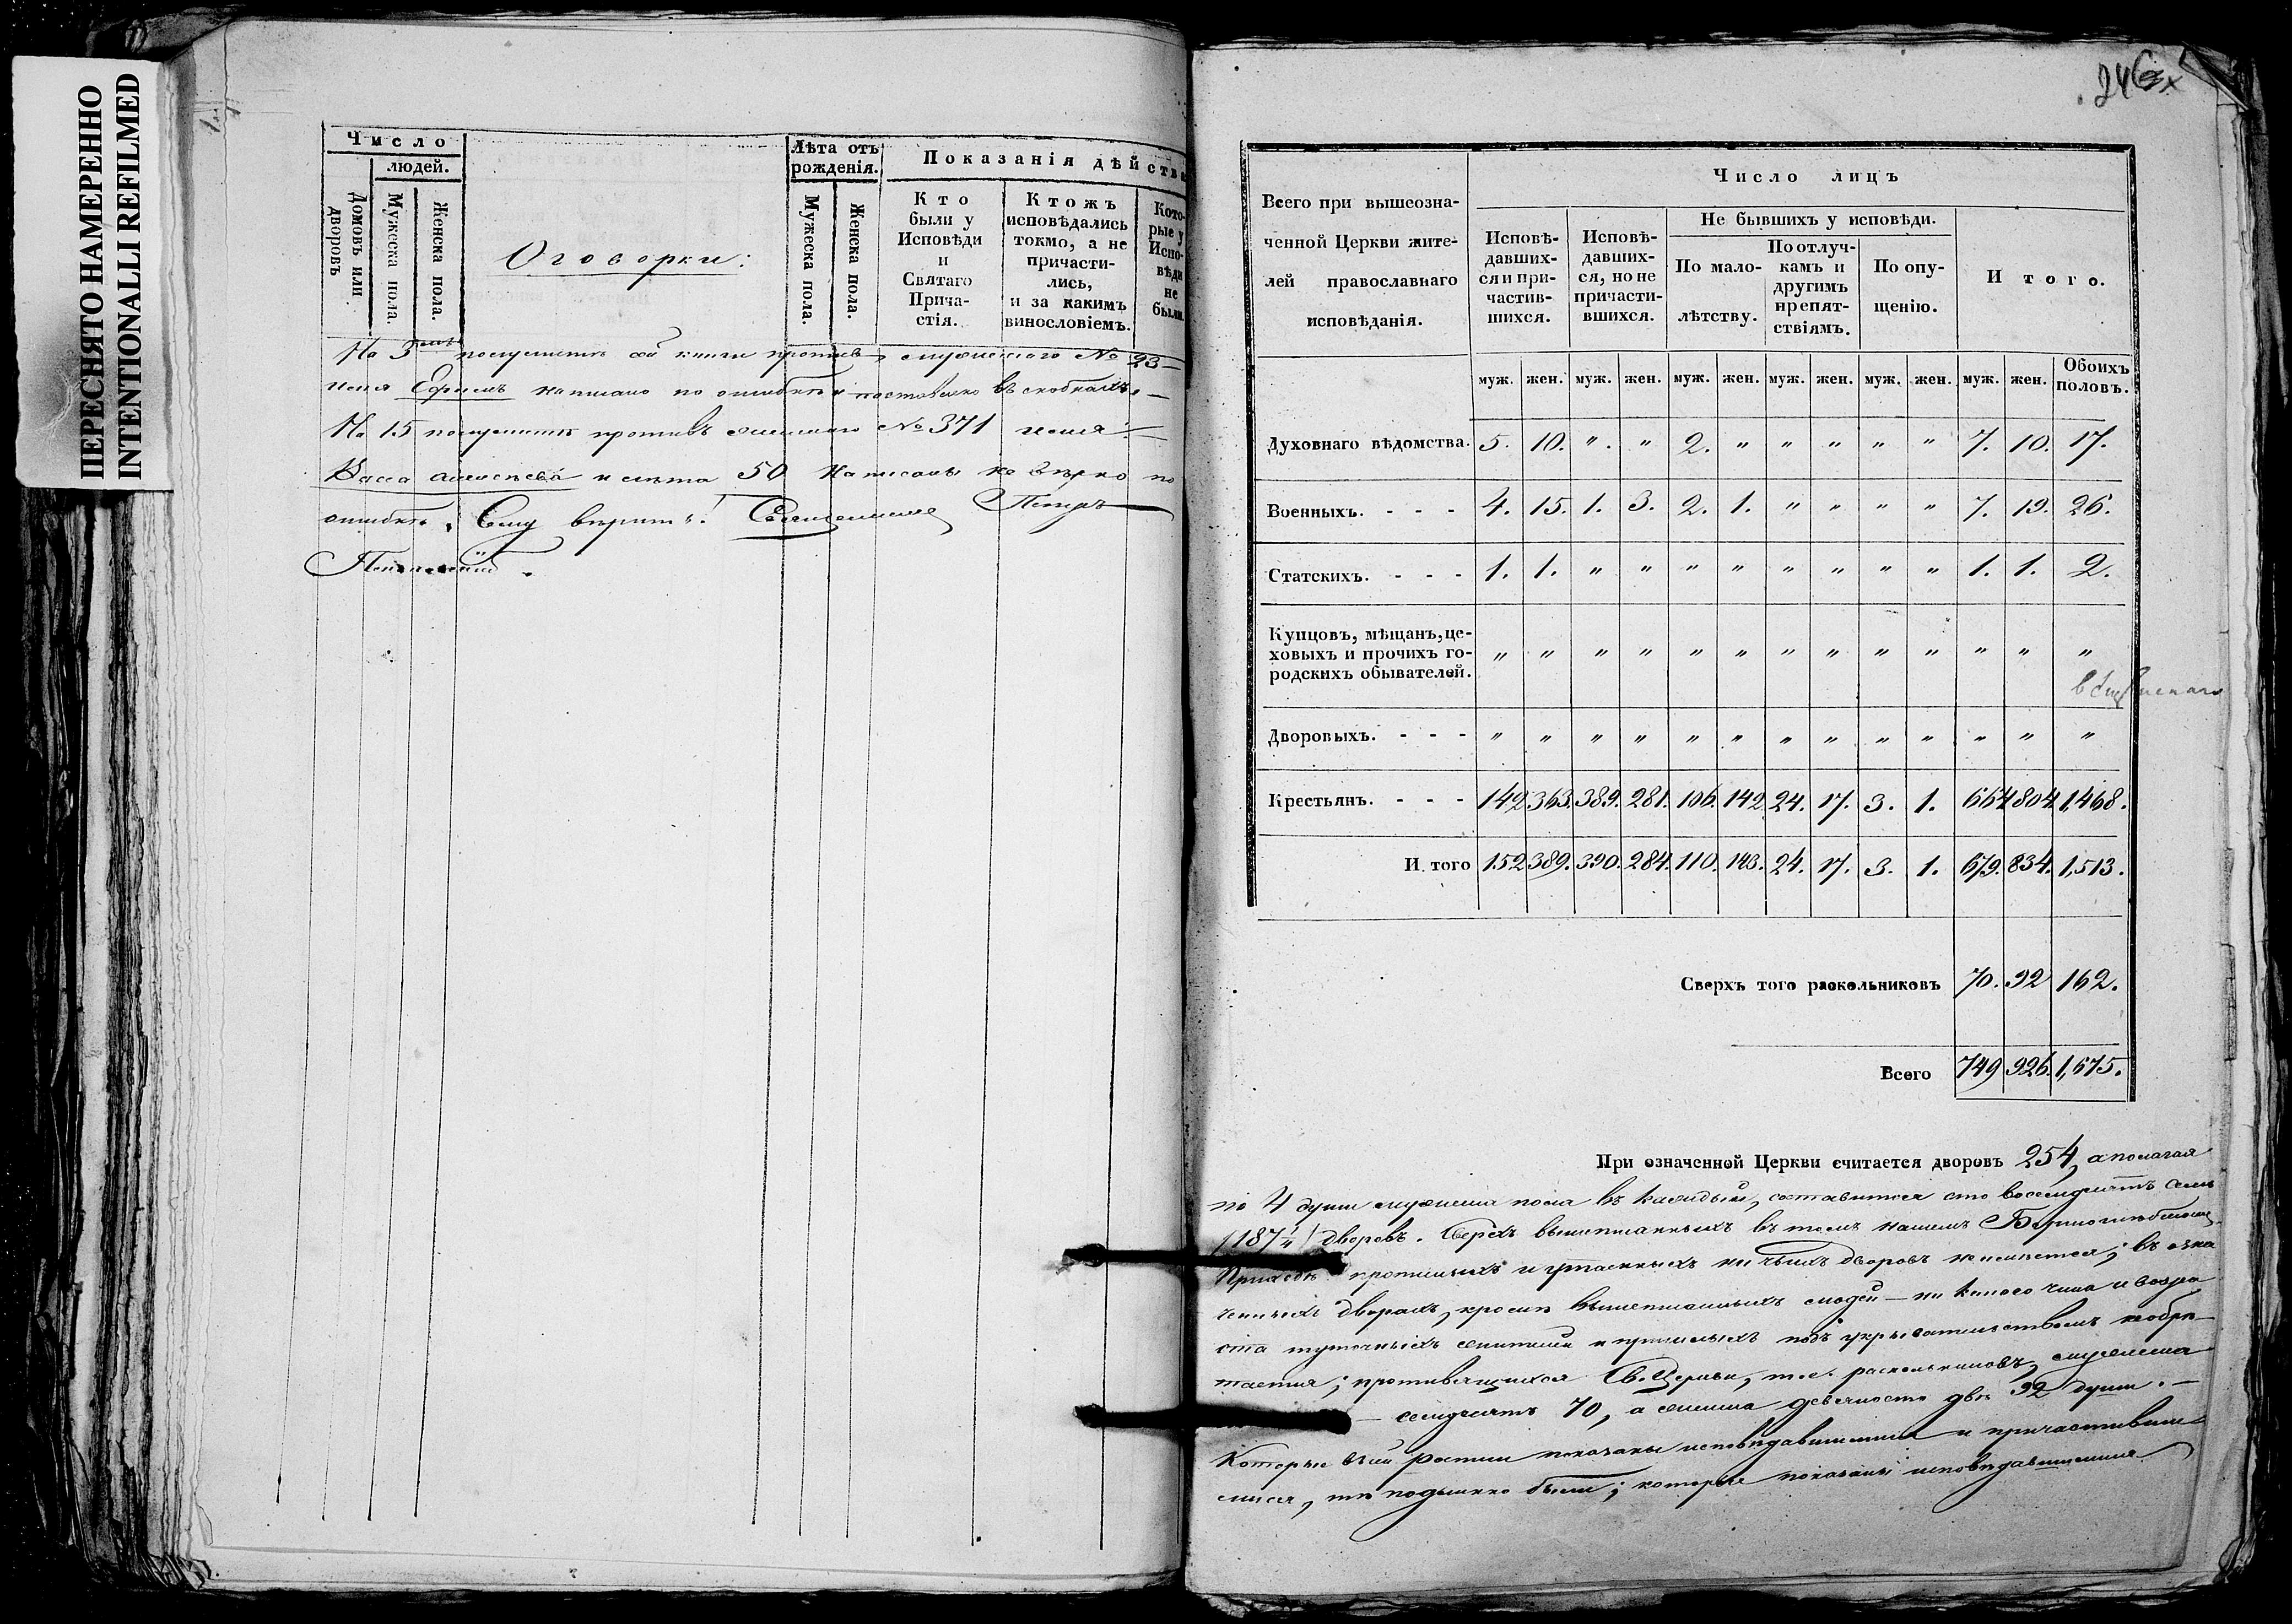 ПЕРЕСНЯТО НАМЕРЕННО
INTENTIONALLI REFILMED
Число
людей.
Домовъ или дворовъ
Мужеска пола.
Женска пола.
Оговорки:
Лѣта отъ рожденія.
Мужеска пола.
Женска пола.
Показанія дѣйства
Кто были у Исповѣди и Святаго Прича-стія.
Ктожъ исповѣдались токмо, а не причасти-лись, и за какимъ винословіемъ.
Кото-рые у Испо-вѣди не были.
На 3 полулистѣ сей книги противъ мужескаго № 23
имя Ефимъ написано по ошибкѣ и поставлено въ скобкахъ.
На 15 полулистѣ противъ женскаго № 371 имя:
Васса Алексѣева и лѣта 50 написаны не вѣрно по
ошибкѣ. Сему вѣрить! Священникъ Петръ
246
Всего при вышеозна-
ченной Церкви жите-
лей православнаго
исповѣданія.
Число лицъ
Исповѣ-давших-ся и при-частив-шихся.
Исповѣ-давших-ся, но не причасти-вшихся.
Не бывшихъ у исповѣди.
По мало-лѣтству.
По отлуч-камъ и другимъ препят-ствіямъ.
По опу-щенію.
Итого.
муж. жен. муж. жен. муж. жен. муж. жен. муж. жен. муж. жен. Обоихъ половъ.
Духовнаго вѣдомства. 5. 10. " " 2. " " " " " 7. 10. 17.
Военныхъ. - - - 4. 15. 1. 3. 2. 1. " " " " 7. 19. 26.
Статскихъ. - - - 1. 1. " " " " " " " " 1. 1. 2.
Купцовъ, мѣщанъ, це-
ховыхъ и прочихъ го-
родскихъ обывателей. " " " " " " " " " " " " "
Дворовыхъ. - - - " " " " " " " " " " " " "
Крестьянъ. - - - 142 363. 389. 281. 106. 142 24. 17. 3. 1. 664 804 1,468.
Итого 152 389. 390. 284. 110. 143. 24. 17. 3. 1. 679. 834. 1,513.
Сверхъ того раскольниковъ 70. 92 162.
Всего 749 926. 1,675.
При означенной Церкви считается дворовъ 254, а полагая
по 4 души мужеска пола въ каждый, составится сто восемдесятъ семь
(187 1/4) дворовъ. Сверхъ вышеписанныхъ въ томъ нашемъ
Приходѣ прописныхъ и утаенныхъ ни чьихъ дворовъ не имѣется; въ озна
ченныхъ дворахъ, кромѣ вышеписанныхъ людей – ни какого чина и возра
ста тутошныхъ жителей и пришлыхъ подъ укрывательствомъ необрѣ-
тается; противящихся Св. Церкви, т. е. раскольниковъ, мужеска
семдесятъ 70, а женска девяносто двѣ 92 души. –
Которые въ сей росписи показаны исповѣдавшимися и причастивши
мися, тѣ подлинно были; которые показаны исповѣдавшимися